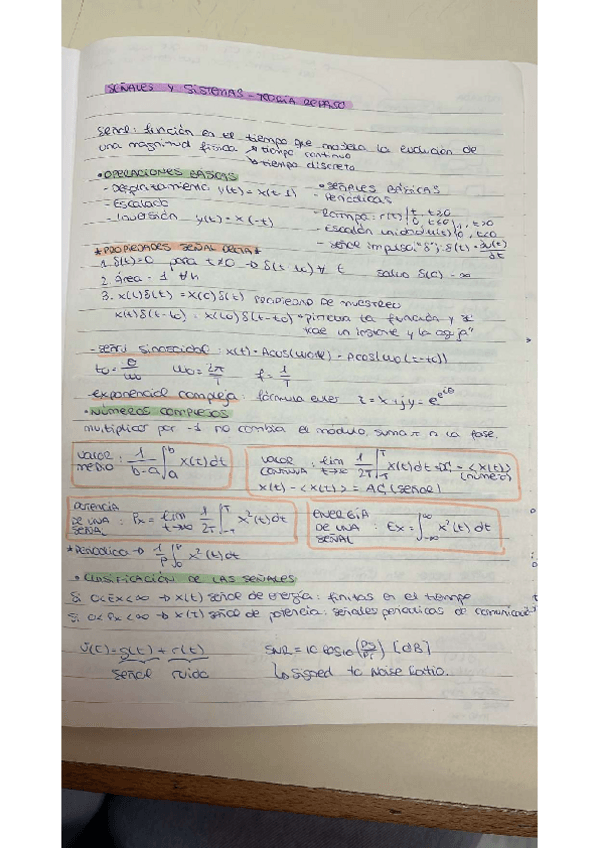 SEÑALES Y SISTEMAS - TEORÍA REPASO
Señal: función en el tiempo que modela la evolución de
una magnitud física → tiempo continuo
↳ tiempo discreto
• OPERACIONES BÁSICAS
- Desplazamiento y(t) = x(t-1)
- Escalado
- Inversión y(t) = x(-t)
• SEÑALES BÁSICAS
- Periódicas
- Rampa: r(t) | t, t≥0
0, t<0
- Escalón unidad u(t) | 1, t>0
0, t<0
- señal impulso "δ": δ(t) = ∂u(t)/dt
* PROPIEDADES SEÑAL DELTA *
1. δ(t)=0 para t≠0 → δ(t) ∀ t salvo δ(0) = ∞
2. área = 1
3. x(t)δ(t) = x(0)δ(t) PROPIEDAD DE MUESTREO
x(t)δ(t-t0) = x(t0)δ(t-t0) la función y
"cae un y la aguja"
- señal sinusoidal: x(t) = Acos(ω0t+θ) = Acos(ω0(t-t0))
t0 = θ/ω0 ω0 = 2π/T f = 1/T
- exponencial compleja: fórmula euler z = x+jy = e
• NÚMEROS COMPLEJOS
multiplicar por -1 no cambia el módulo, suma π a la fase.
VALOR MEDIO : 1/(b-a) ∫_a^b x(t)dt
VALOR CONTINUA : lim t→∞ 1/2T ∫_-T^T x(t)dt = DC = <x(t)> (número)
x(t) - <x(t)> = AC (señal)
POTENCIA DE UNA SEÑAL : Px = lim t→∞ 1/2T ∫_-T^T x²(t)dt
ENERGÍA DE UNA SEÑAL : Ex = ∫_-∞^∞ x²(t)dt
* Periódica → 1/P ∫_0^P x²(t)dt
• CLASIFICACIÓN DE LAS SEÑALES
Si 0<Ex<∞ → x(t) señal de energía: finitas en el tiempo
Si 0<Px<∞ → x(t) señal de potencia: señales periódicas de
v(t) = s(t) + r(t) SNR = 10 log10 (Ps/Pr) [dB]
señal ruido ↳ Signed to Noise Ratio.